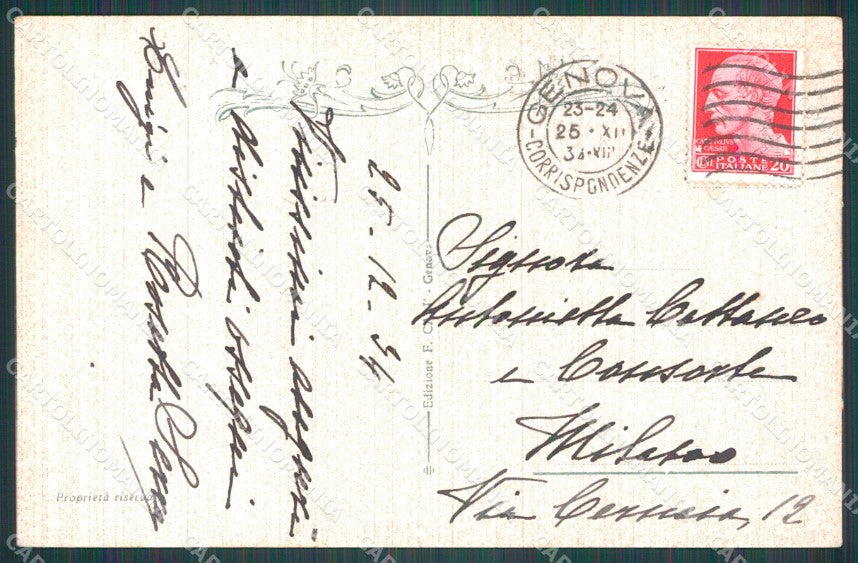 25-12-34
Vivissimi auguri
e distinti ossequi
Luigi e
GENOVA
23-24
25·XII
34·XIII
CORRISPONDENZE
POSTE
ITALIANE 20
Edizione F. - Genova
Signora
Antonietta Cattaneo
e Consorte
Milano
Via Cernaia, 12
Proprietà riservata
CARTOLINOMANIA